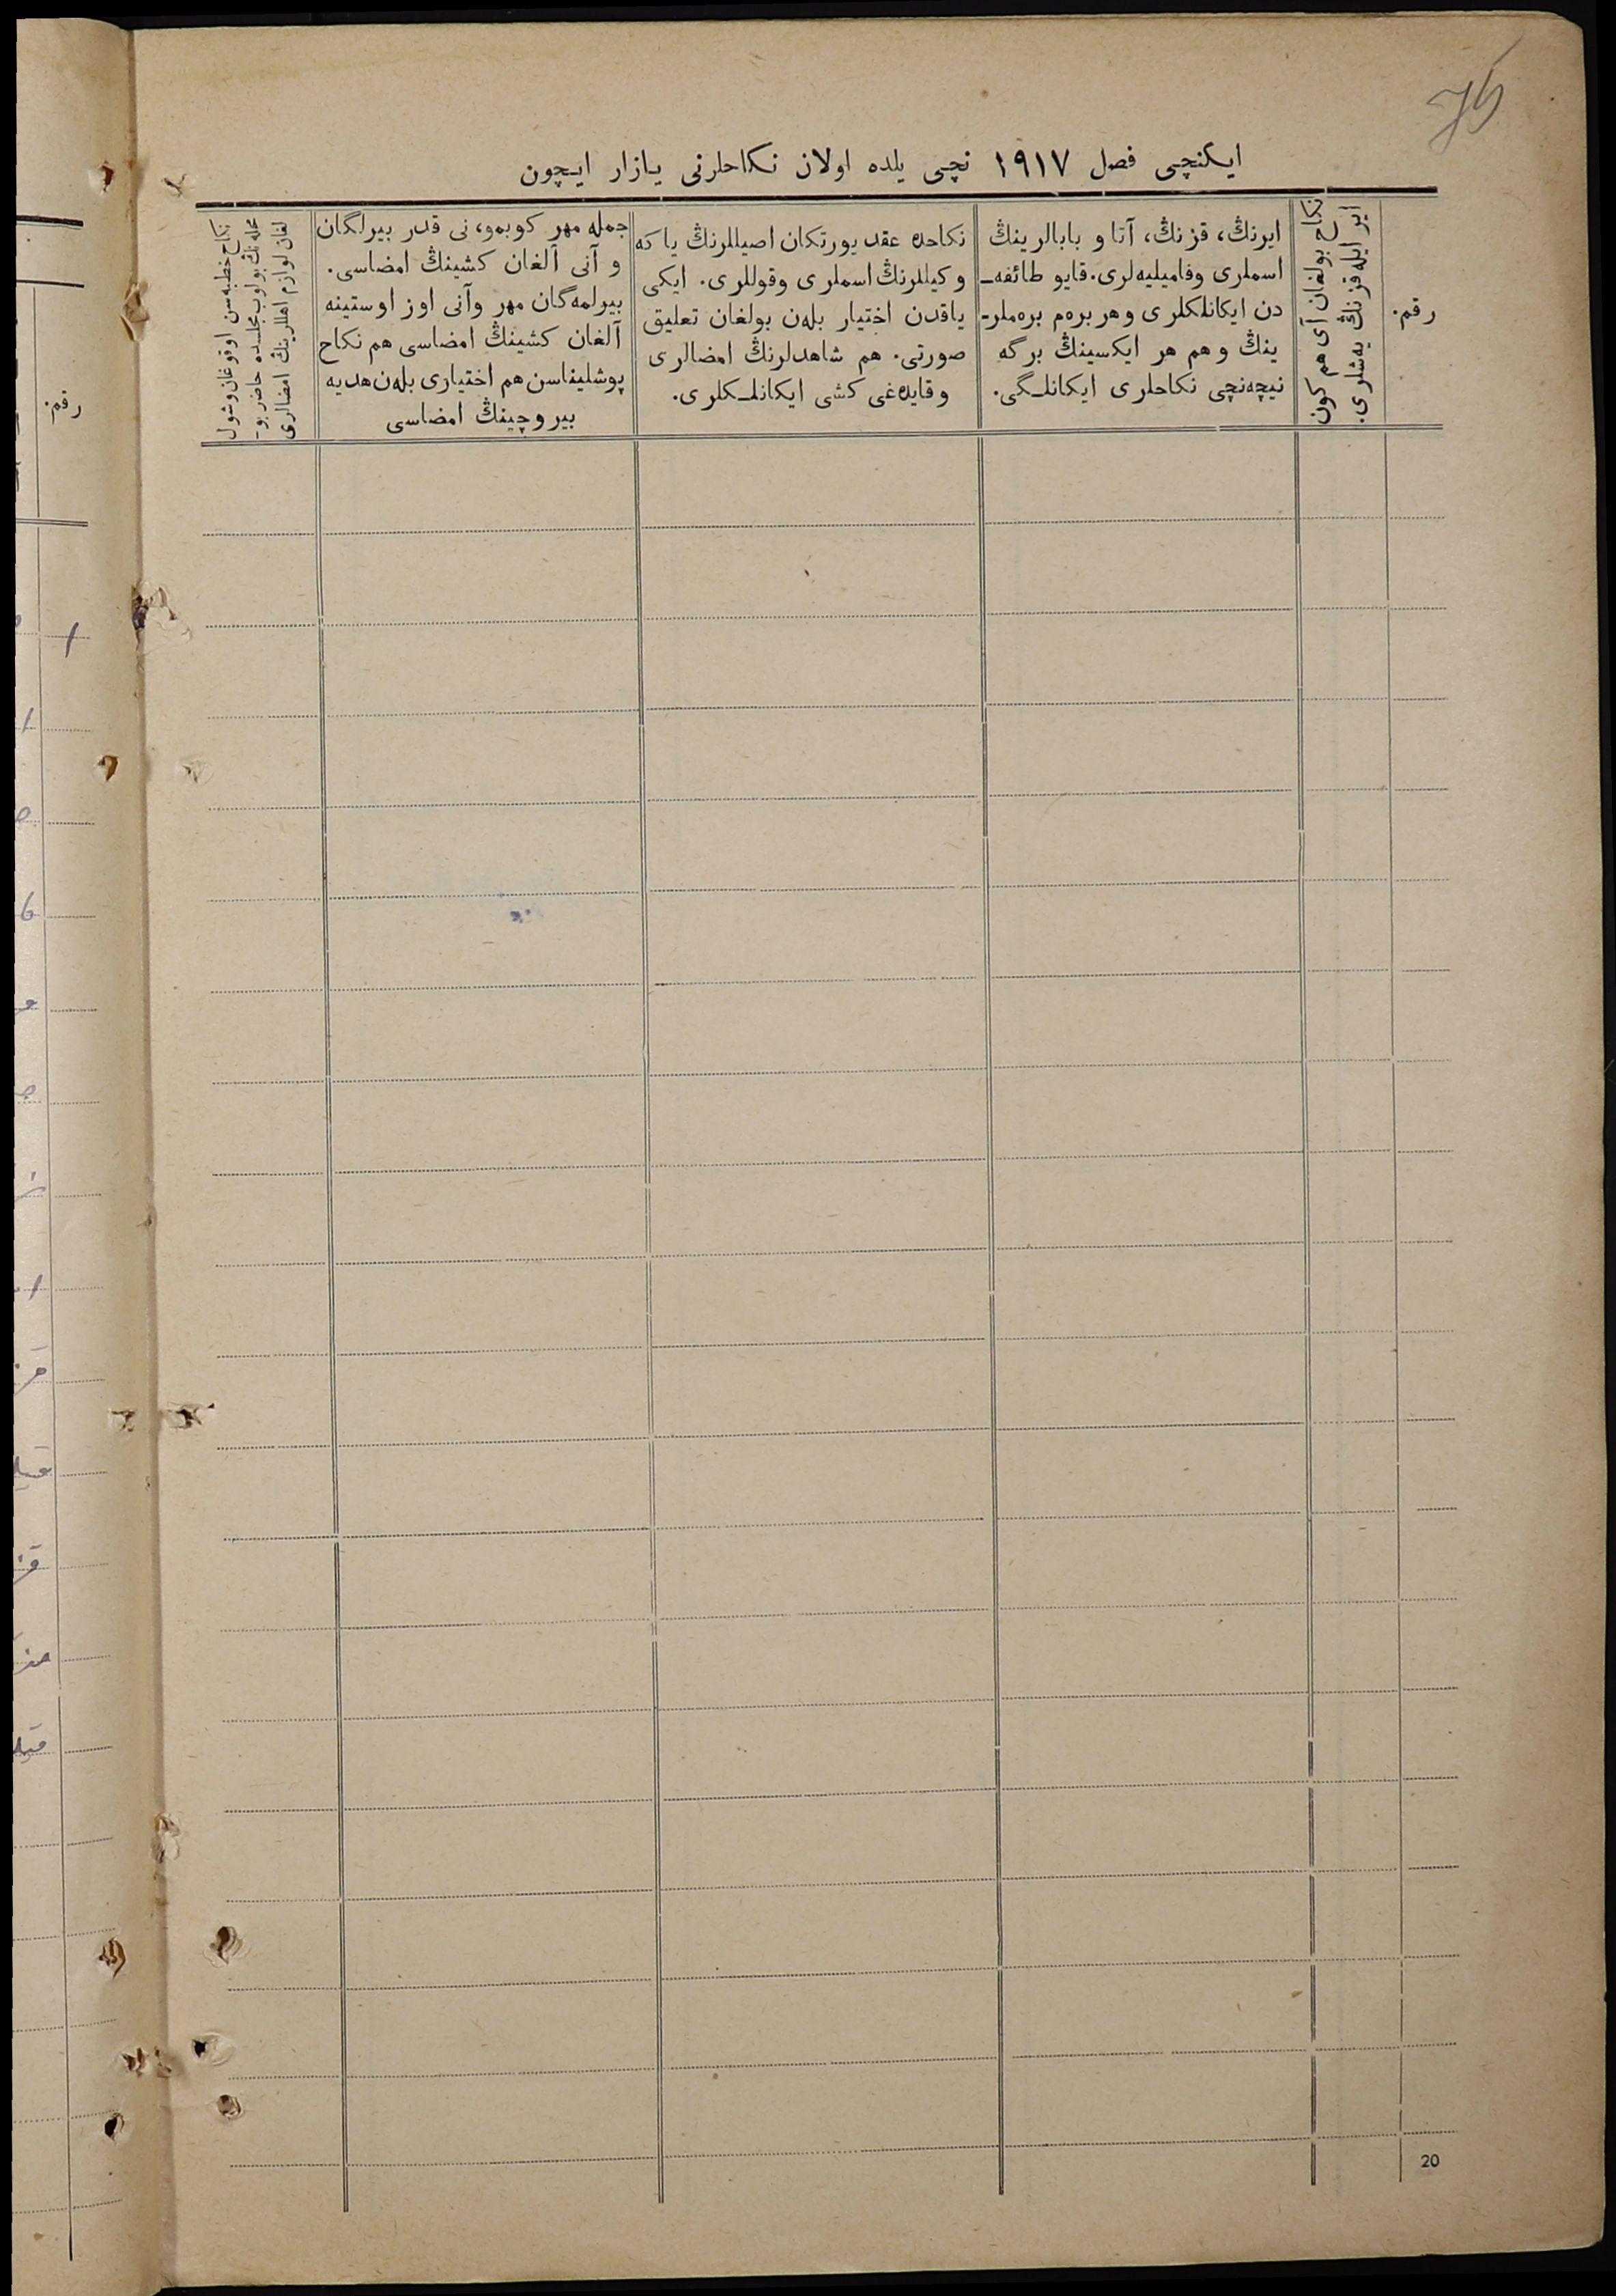 76
ایکنچی فصل ۱۹۱۷ نچی یلده اولان نکاحلرنی یازار ایچون
رقم.
نکاح بولغان آی هم کون
ایر ایله قزنڭ یه‌شلری.
ایرنڭ، قزنڭ، آتا و بابالرینڭ
اسملری وفامیلیه‌لری. قایو طائفه‌ـ
دن ایکانلکلری وهر بره‌م بره‌ملرـ
ینڭ وهم هر ایکسینڭ برگه
نیچه‌نچی نکاحلری ایکانلـگی.
نکاحده عقد یورتکان اصیللرنڭ یا که
وکیللرنڭ اسملری وقوللری. ایکی
یاقدن اختیار بله‌ن بولغان تعلیق
صورتی. هم شاهدلرنڭ امضالری
وقایده‌غی کشی ایکانلـکلری.
جمله مهر کوبمو، نی قدر بیرلگان
و آنی آلغان کشینڭ امضاسی.
بیرلمه‌گان مهر وآنی اوز اوستینه
آلغان کشینڭ امضاسی هم نکاح
پوشلیناسن هم اختیاری بله‌ن هدیه
بیروچینڭ امضاسی
نکاح خطبه‌سن اوقوغان وشول
محله‌نڭ بولوب مجلسده حاضر بوـ
لغان لوازم اهللرینڭ امضالری
20
رقم.